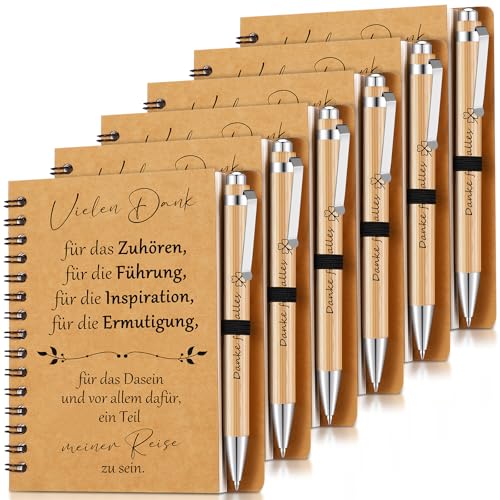 Vielen Dank
für das Zuhören,
für die Führung,
für die Inspiration,
für die Ermutigung,
für das Dasein
und vor allem dafür,
ein Teil
meiner Reise
zu sein.
Danke für alles
Danke für alles
Danke für alles
Danke für alles
Danke für alles